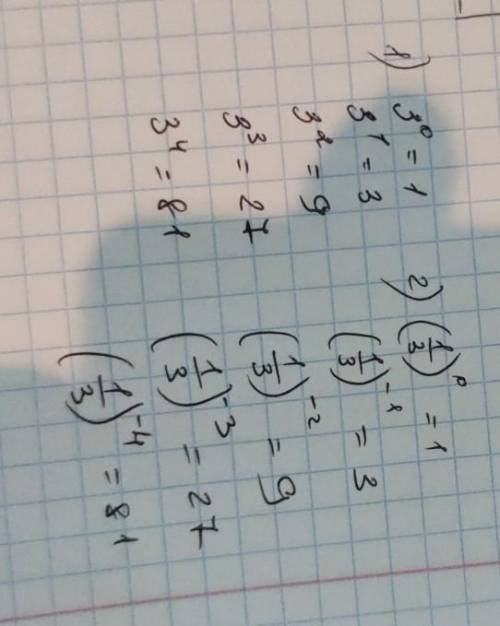 1) 3⁰ = 1
3¹ = 3
3² = 9
3³ = 27
3⁴ = 81
2) (1/3)⁰ = 1
(1/3)⁻¹ = 3
(1/3)⁻² = 9
(1/3)⁻³ = 27
(1/3)⁻⁴ = 81